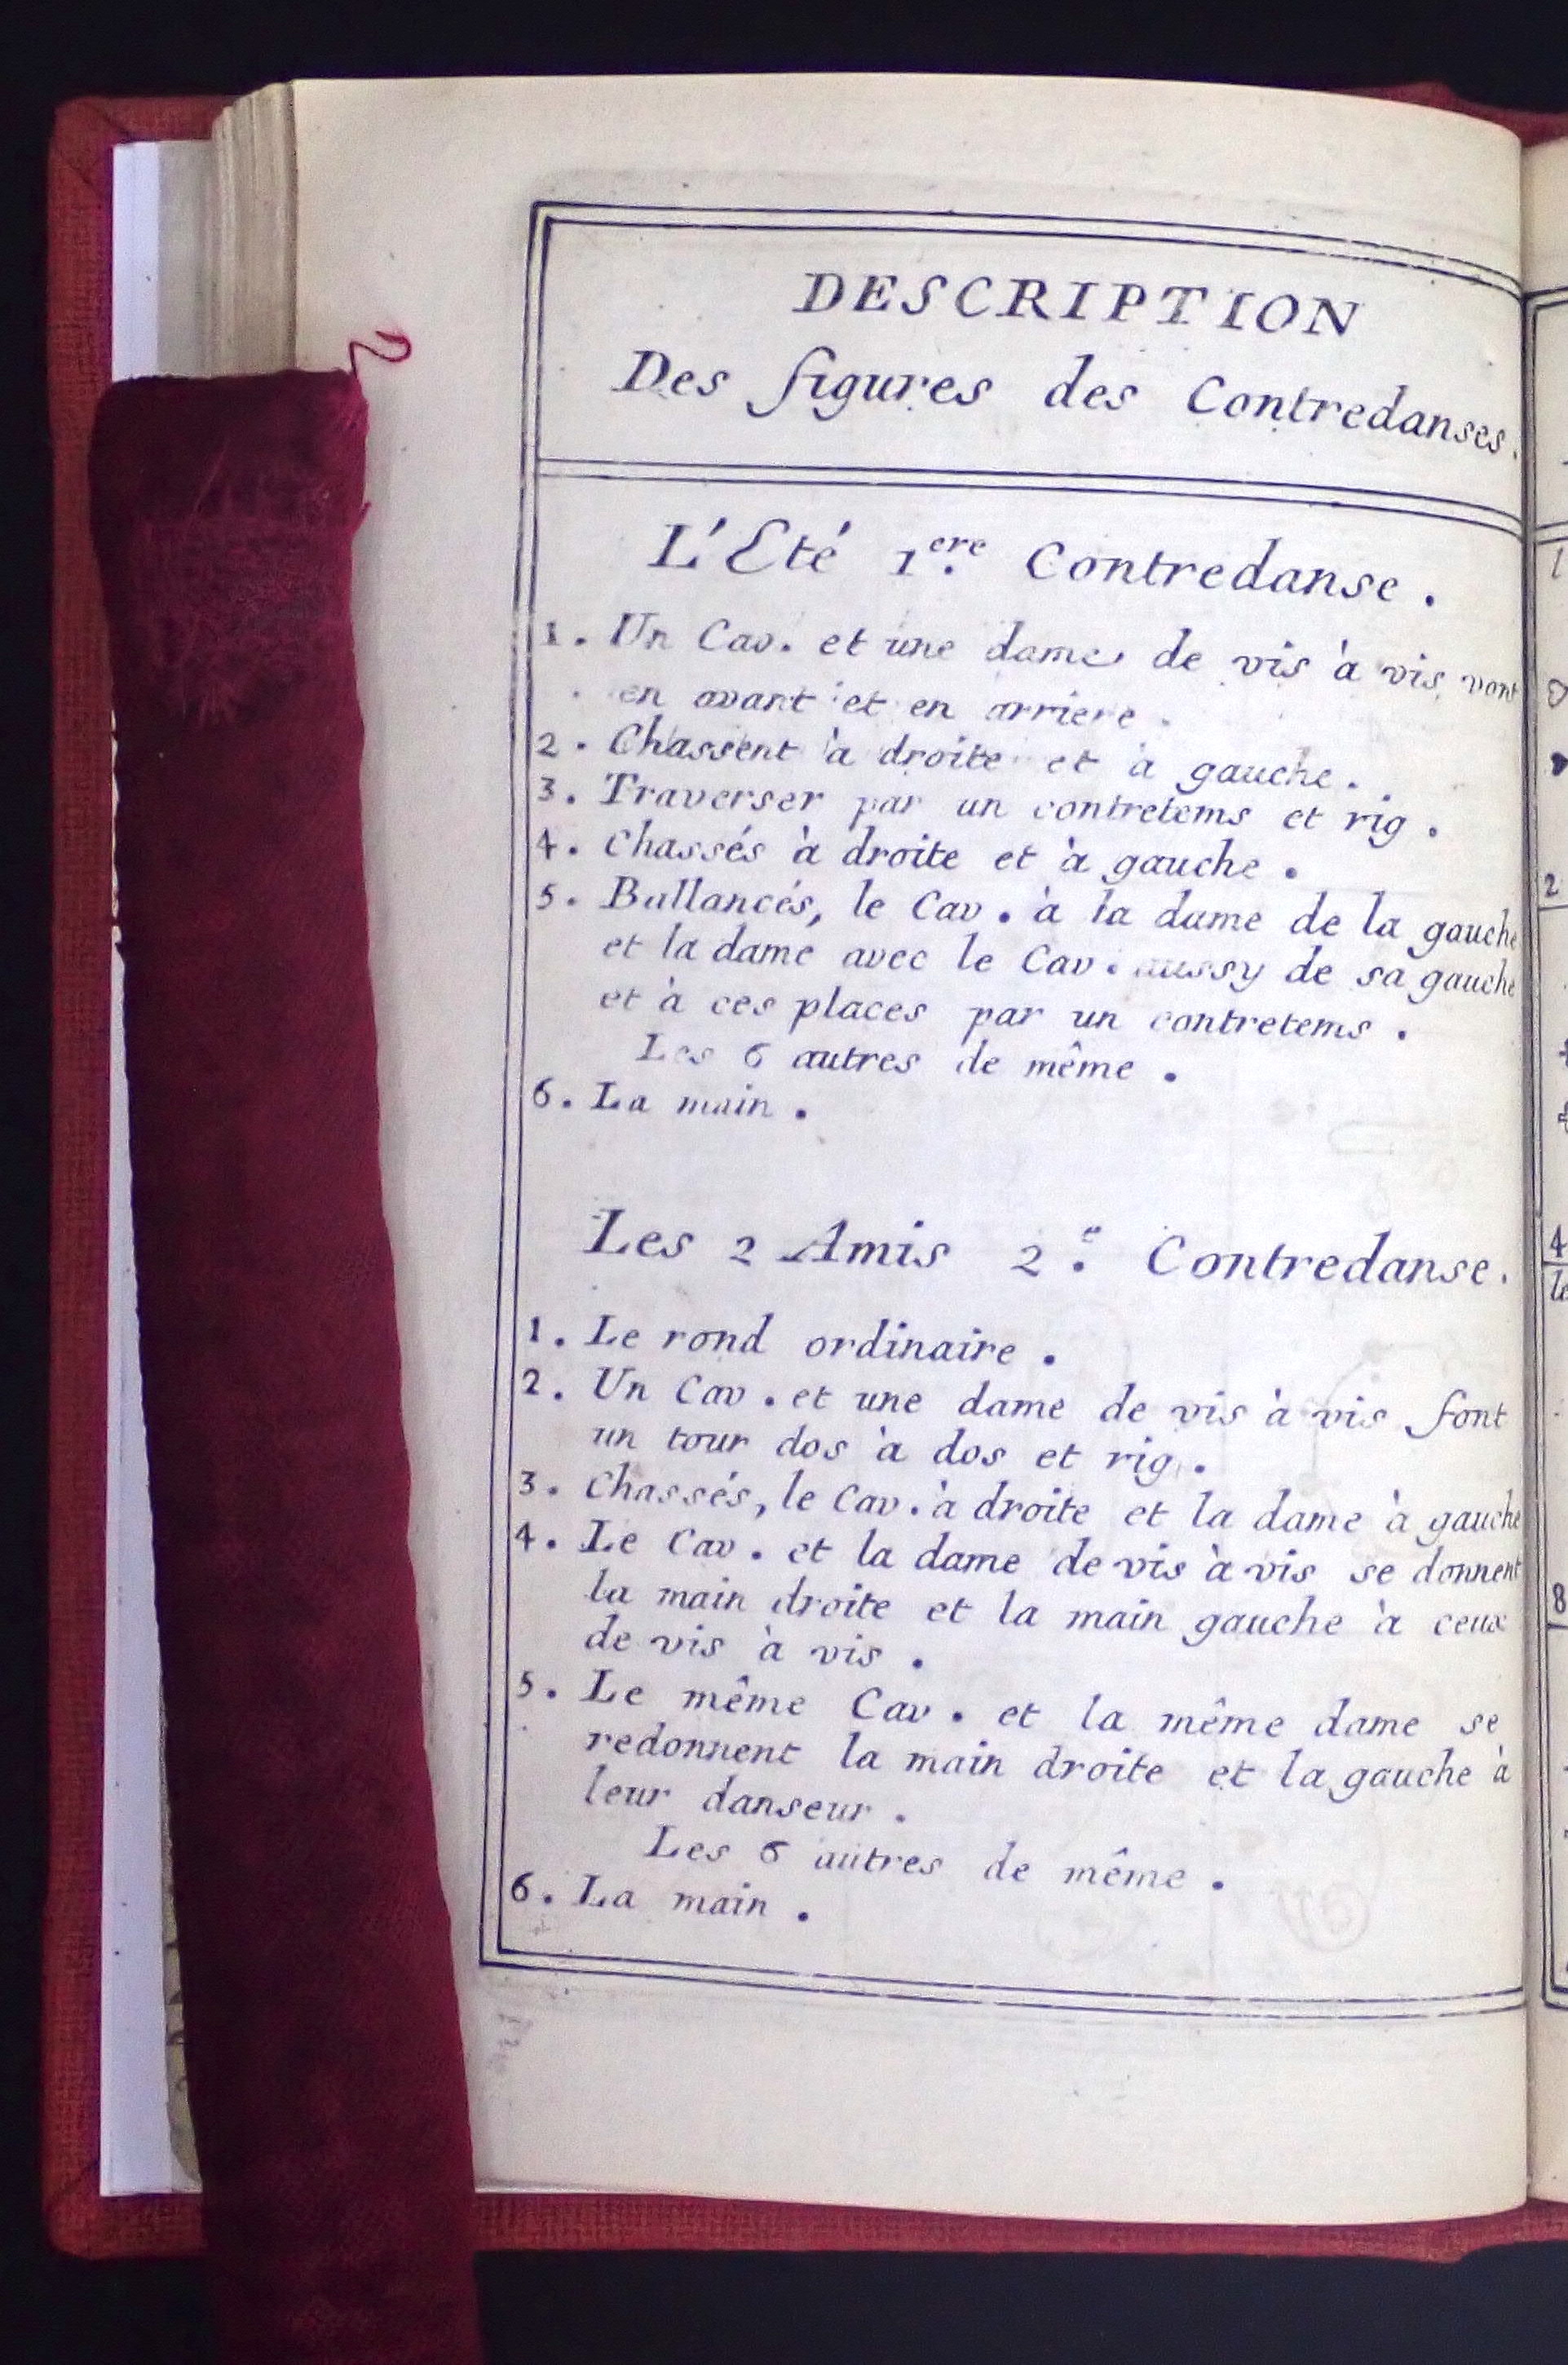 DESCRIPTION
Des figures des Contredanses.
L'Eté 1.ere Contredanse.
1. Un Cav. et une dame de vis à vis vont
en avant et en arriere.
2. Chassent à droite et à gauche.
3. Traverser par un contretems et rig.
4. Chassés à droite et à gauche.
5. Ballancés, le Cav. à la dame de la gauche
et la dame avec le Cav. aussy de sa gauche
et à ces places par un contretems.
Les 6 autres de même.
6. La main.
Les 2 Amis 2.e Contredanse.
1. Le rond ordinaire.
2. Un Cav. et une dame de vis à vis font
un tour dos à dos et rig.
3. Chassés, le Cav. à droite et la dame à gauche
4. Le Cav. et la dame de vis à vis se donnent
la main droite et la main gauche à ceux
de vis à vis.
5. Le même Cav. et la même dame se
redonnent la main droite et la gauche à
leur danseur.
Les 6 autres de même.
6. La main.
2
4
8